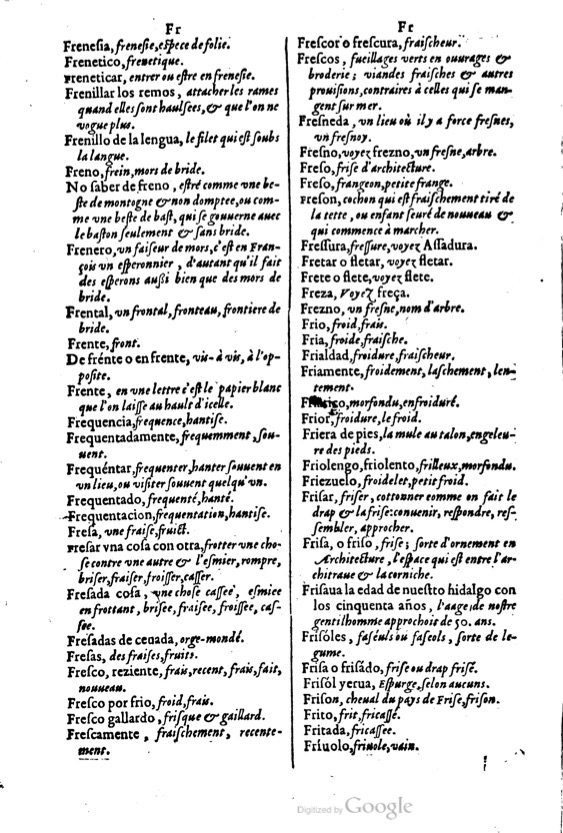 Fr
Frenesia, frenesie, espece de folie.
Frenetico, frenetique.
Freneticar, entrer ou estre en frenesie.
Frenillar los remos, attacher les rames
quand elles sont haulsées, & que l'on ne
vogue plus.
Frenillo de la lengua, le filet qui est soubs
la langue.
Freno, frein, mors de bride.
No saber de freno, estre comme vne be-
ste de montogne & non domptee, ou com-
me vne beste de bast, qui se gouuerne auec
le baston seulement & sans bride.
Frenero, vn faiseur de mors, c'est en Fran-
çois vn esperonnier, d'autant qu'il fait
des esperons aussi bien que des mors de
bride.
Frental, vn frontal, fronteau, frontiere de
bride.
Frente, front.
De frénte o en frente, vis-à vis, à l'op-
posite.
Frente, en vne lettre c'est le papier blanc
que l'on laisse au hault d'icelle.
Frequencia, frequence, hantise.
Frequentadamente, frequemment, sou-
uent.
Frequéntar, frequenter, hanter souuent en
vn lieu, ou visiter souuent quelqu'vn.
Frequentado, frequenté, hanté.
Frequentacion, frequentation, hantise.
Fresa, vne fraise, fruict.
Fresar vna cosa con otra, frotter vne cho-
se contre vne autre & l'esmier, rompre,
briser, fraiser, froisser, casser.
Fresada cosa, vne chose cassee, esmiee
en frottant, brisee, fraisee, froissee, cas-
see.
Fresadas de ceuada, orge-mondé.
Fresas, des fraises, fruits.
Fresco, reziente, frais, recent, frais, fait,
nouueau.
Fresco por frio, froid, frais.
Fresco gallardo, frisque & gaillard.
Frescamente, fraischement, recente-
ment.
Fr
Frescor o frescura, fraischeur.
Frescos, fueillages verts en ouurages &
broderie; viandes fraisches & autres
prouisions, contraires à celles qui se man-
gent sur mer.
Fresneda, vn lieu où il y a force fresnes,
vn fresnoy.
Fresno, voyez frezno, vn fresne, arbre.
Freso, frise d'architecture.
Freso, frangeon, petite frange.
Freson, cochon qui est fraischement tiré de
la tette, ou enfant seuré de nouueau &
qui commence à marcher.
Fressura, fressure, voyez Assadura.
Fretar o fletar, voyez fletar.
Frete o flete, voyez flete.
Freza, Voyez freça.
Frezno, vn fresne, nom d'arbre.
Frio, froid, frais.
Fria, froide, fraische.
Frialdad, froidure, fraischeur.
Friamente, froidement, laschement, len-
tement.
morfondu, enfroiduré.
Frior, froidure, le froid.
Friera de pies, la mule au talon, engeleu-
re des pieds.
Friolengo, friolento, frilleux, morfondu.
Friezuelo, froidelet, petit froid.
Frisar, friser, cottonner comme on fait le
drap & la frise: conuenir, respondre, res-
sembler, approcher.
Frisa, o friso, frise; sorte d'ornement en
Architecture, l'espace qui est entre l'ar-
chitraue & la corniche.
Frisaua la edad de nuestto hidalgo con
los cinquenta años, l'aage de nostre
gentilhomme approchoit de 50. ans.
Frisóles, faséuls ou faseols, sorte de le-
gume.
Frisa o frisádo, frise ou drap frisé.
Frisól yerua, Espurge, selon aucuns.
Frison, cheual du pays de Frise, frison.
Frito, frit, fricassé.
Fritada, fricassee.
Fríuolo, friuole, vain.
Digitized by Google